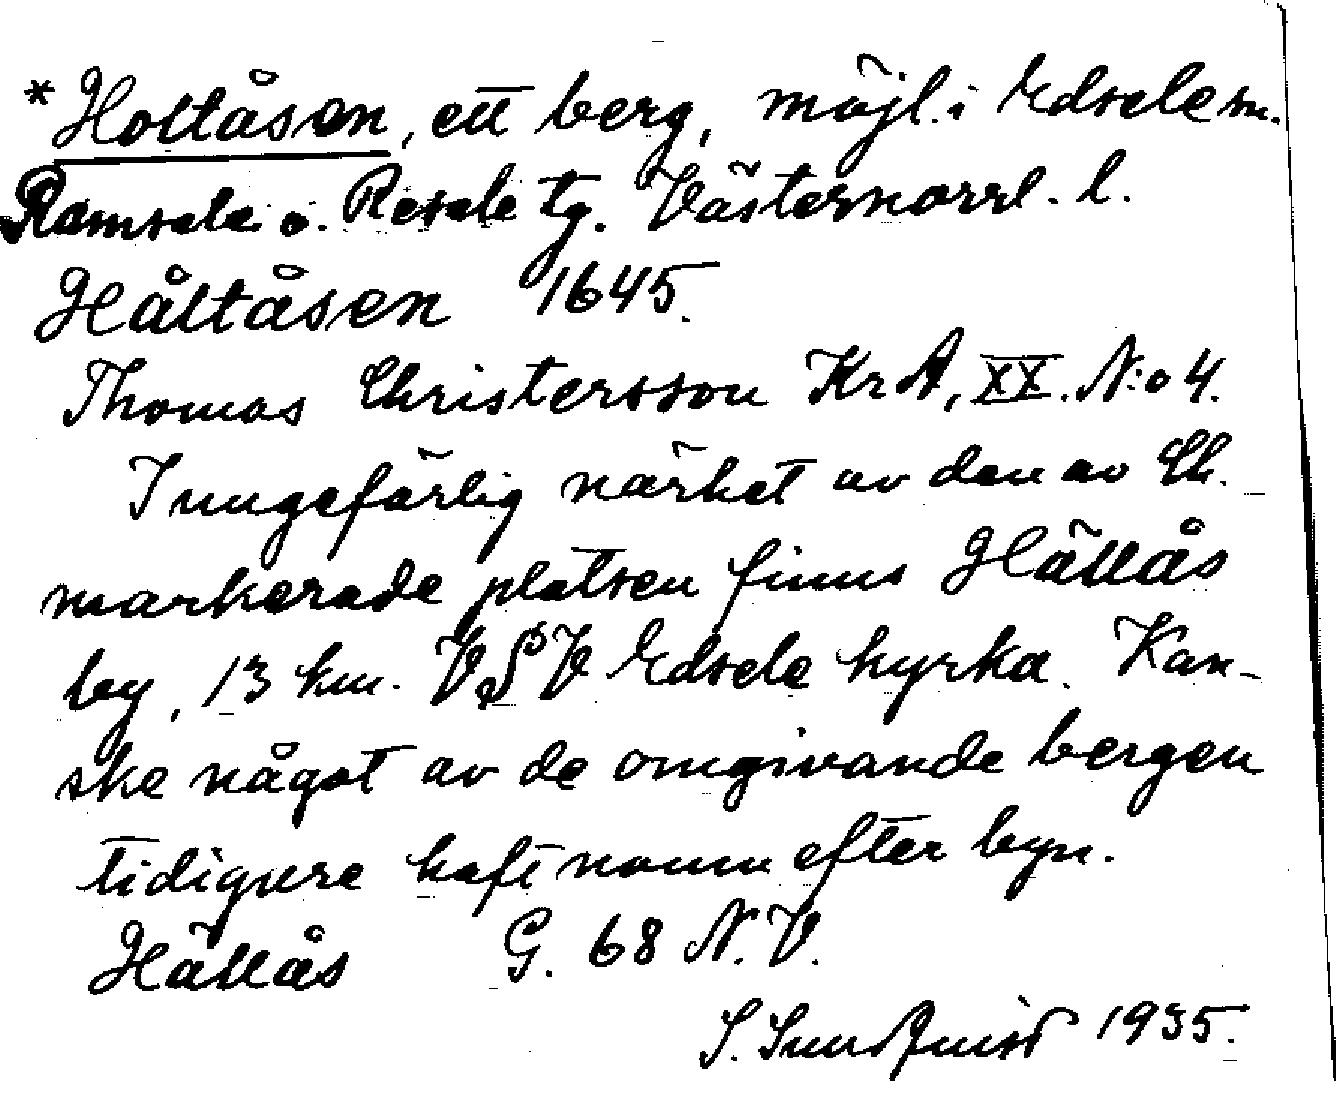 *Holtåsen, ett berg, möjl. i Edsele sn.
Ramsele o. Resele tg. Västernorrl. l.
Håltåsen 1645.
Thomas Christersson KrA, XX. N:o 4.
I ungefärlig närhet av den av Ch.
markerade platsen finns Hällås
by, 13 km. VSV Edsele kyrka. Kan-
ske något av de omgivande bergen
tidigare haft namn efter byn.
Hällås G. 68 N.V.
S. Sundquist 1935.